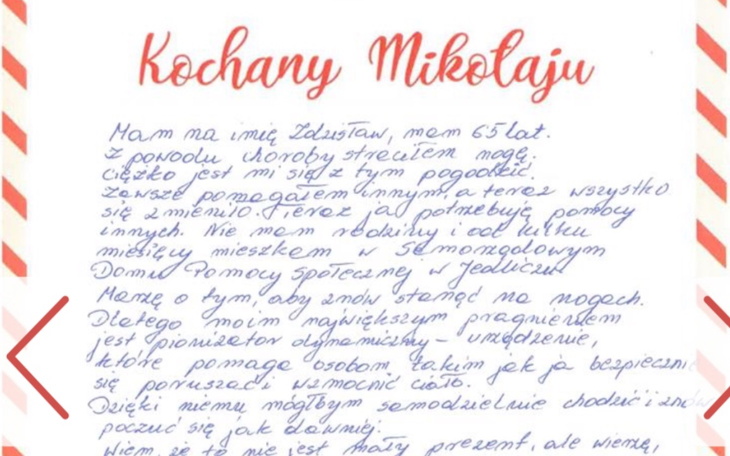 Kochany Mikołaju
Mam na imię Zdzisław, mam 65 lat.
Z powodu choroby straciłem nogę.
Ciężko jest mi się z tym pogodzić.
Zawsze pomagałem innym, a teraz wszystko
się zmieniło. Teraz ja potrzebuję pomocy
innych. Nie mam rodziny i od kilku
miesięcy mieszkam w Samorządowym
Domu Pomocy Społecznej w Jedliczu.
Marzę o tym, aby znów stanąć na nogach.
Dlatego moim największym pragnieniem
jest pionizator dynamiczny – urządzenie,
które pomaga osobom takim jak ja bezpiecznie
się poruszać i wzmocnić ciało.
Dzięki niemu mógłbym samodzielnie chodzić i znów
poczuć się jak dawniej.
Wiem, że to nie jest mały prezent, ale wierzę,